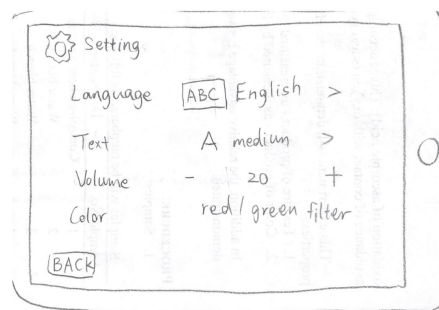 Setting
Language ABC English >
Text A medium >
Volume - 20 +
Color red/green filter
BACK